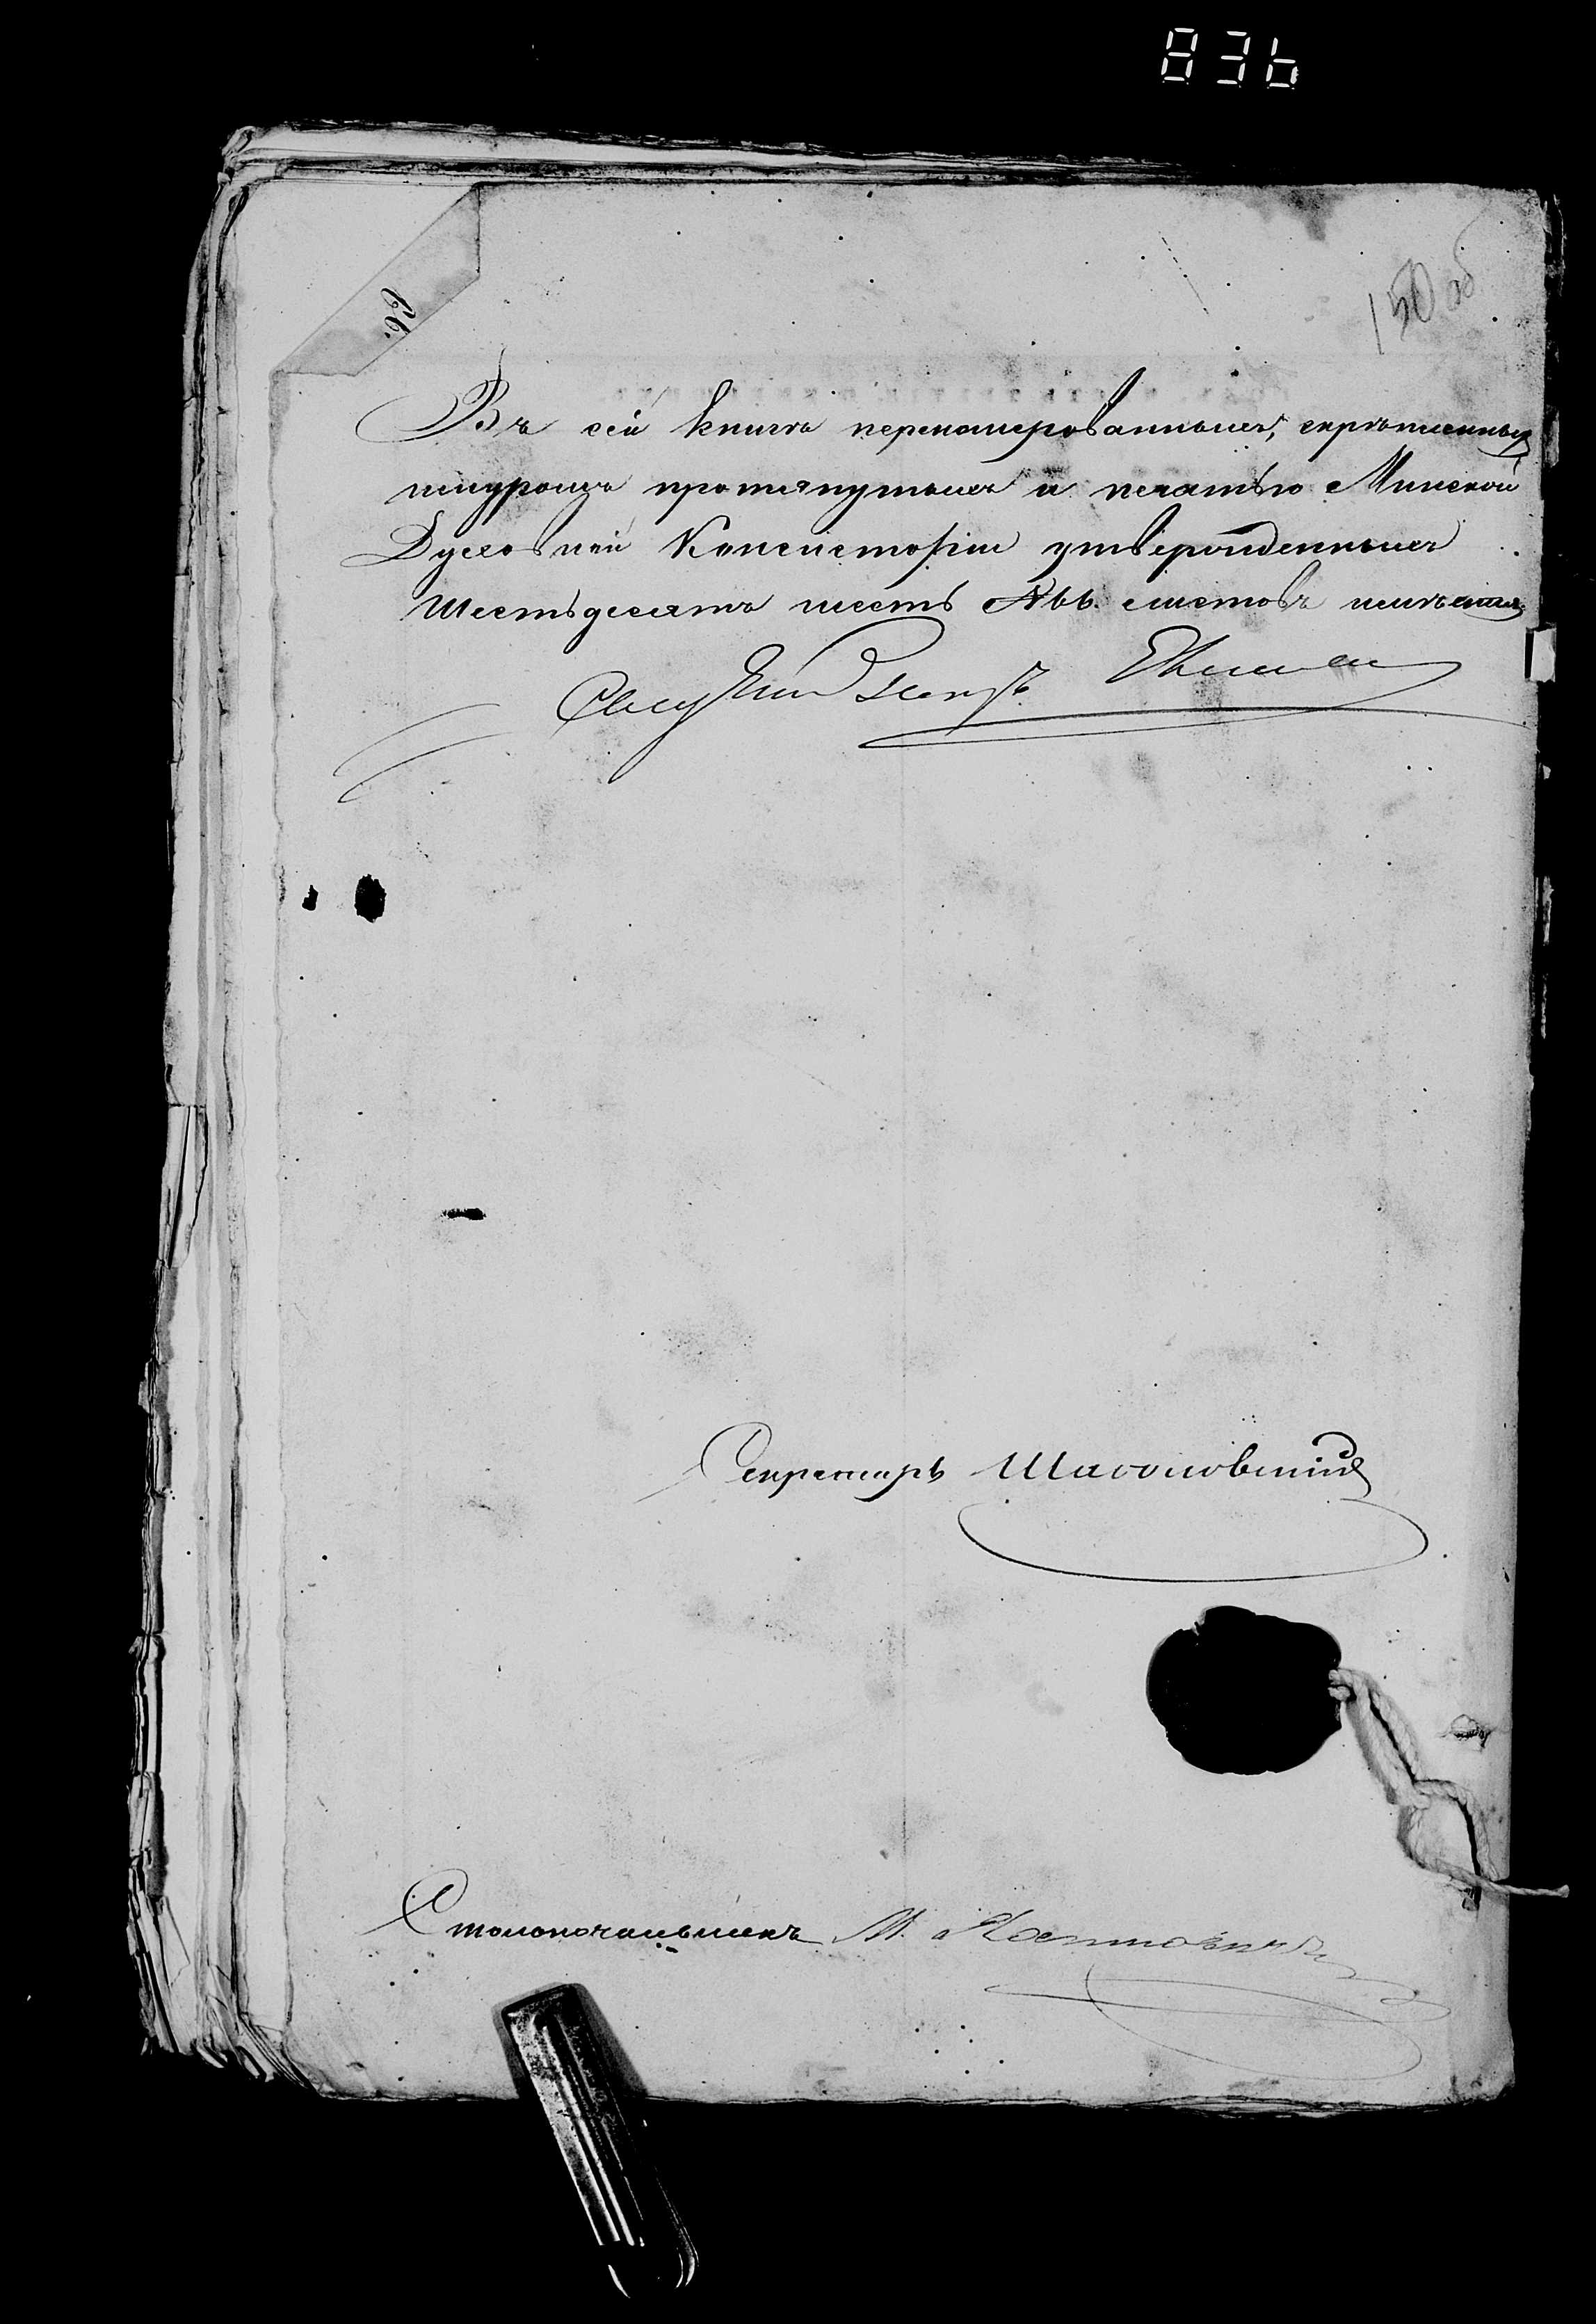 836
150 об
66.
Въ сей книгѣ перенумерованныхъ, скрѣпленныхъ
шнуромъ протянутыхъ и печатью Минской
Духовной Консисторіи утвержденныхъ
шестьдесятъ шесть № 66. листовъ
Секретарь
Столоначальникъ М.